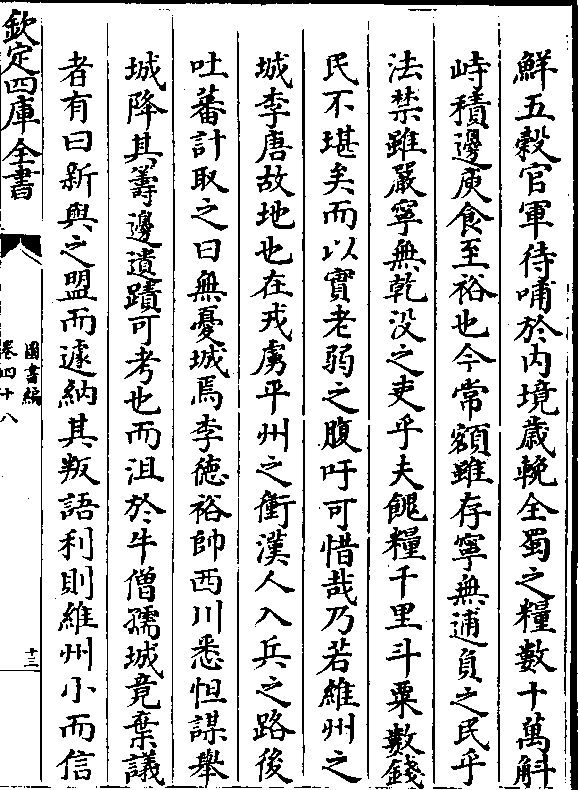 鮮五穀官軍待哺於内境歳輓全蜀之糧數十萬斛
峙積邊庾食至裕也今常額雖存寧無逋負之民乎
法禁雖嚴寧無乾没之吏乎夫餽糧千里斗粟數錢
民不堪矣而以實老弱之腹吁可惜哉乃若維州之
城李唐故地也在戎虜平州之衝漢人入兵之路後
吐蕃計取之曰無憂城焉李德裕帥西川悉怛謀舉
城降其籌邊遺蹟可考也而沮於牛僧孺城竟棄議
者有曰新與之盟而遽納其叛語利則維州小而信
欽定四庫全書
圖書編
卷四十八
十三